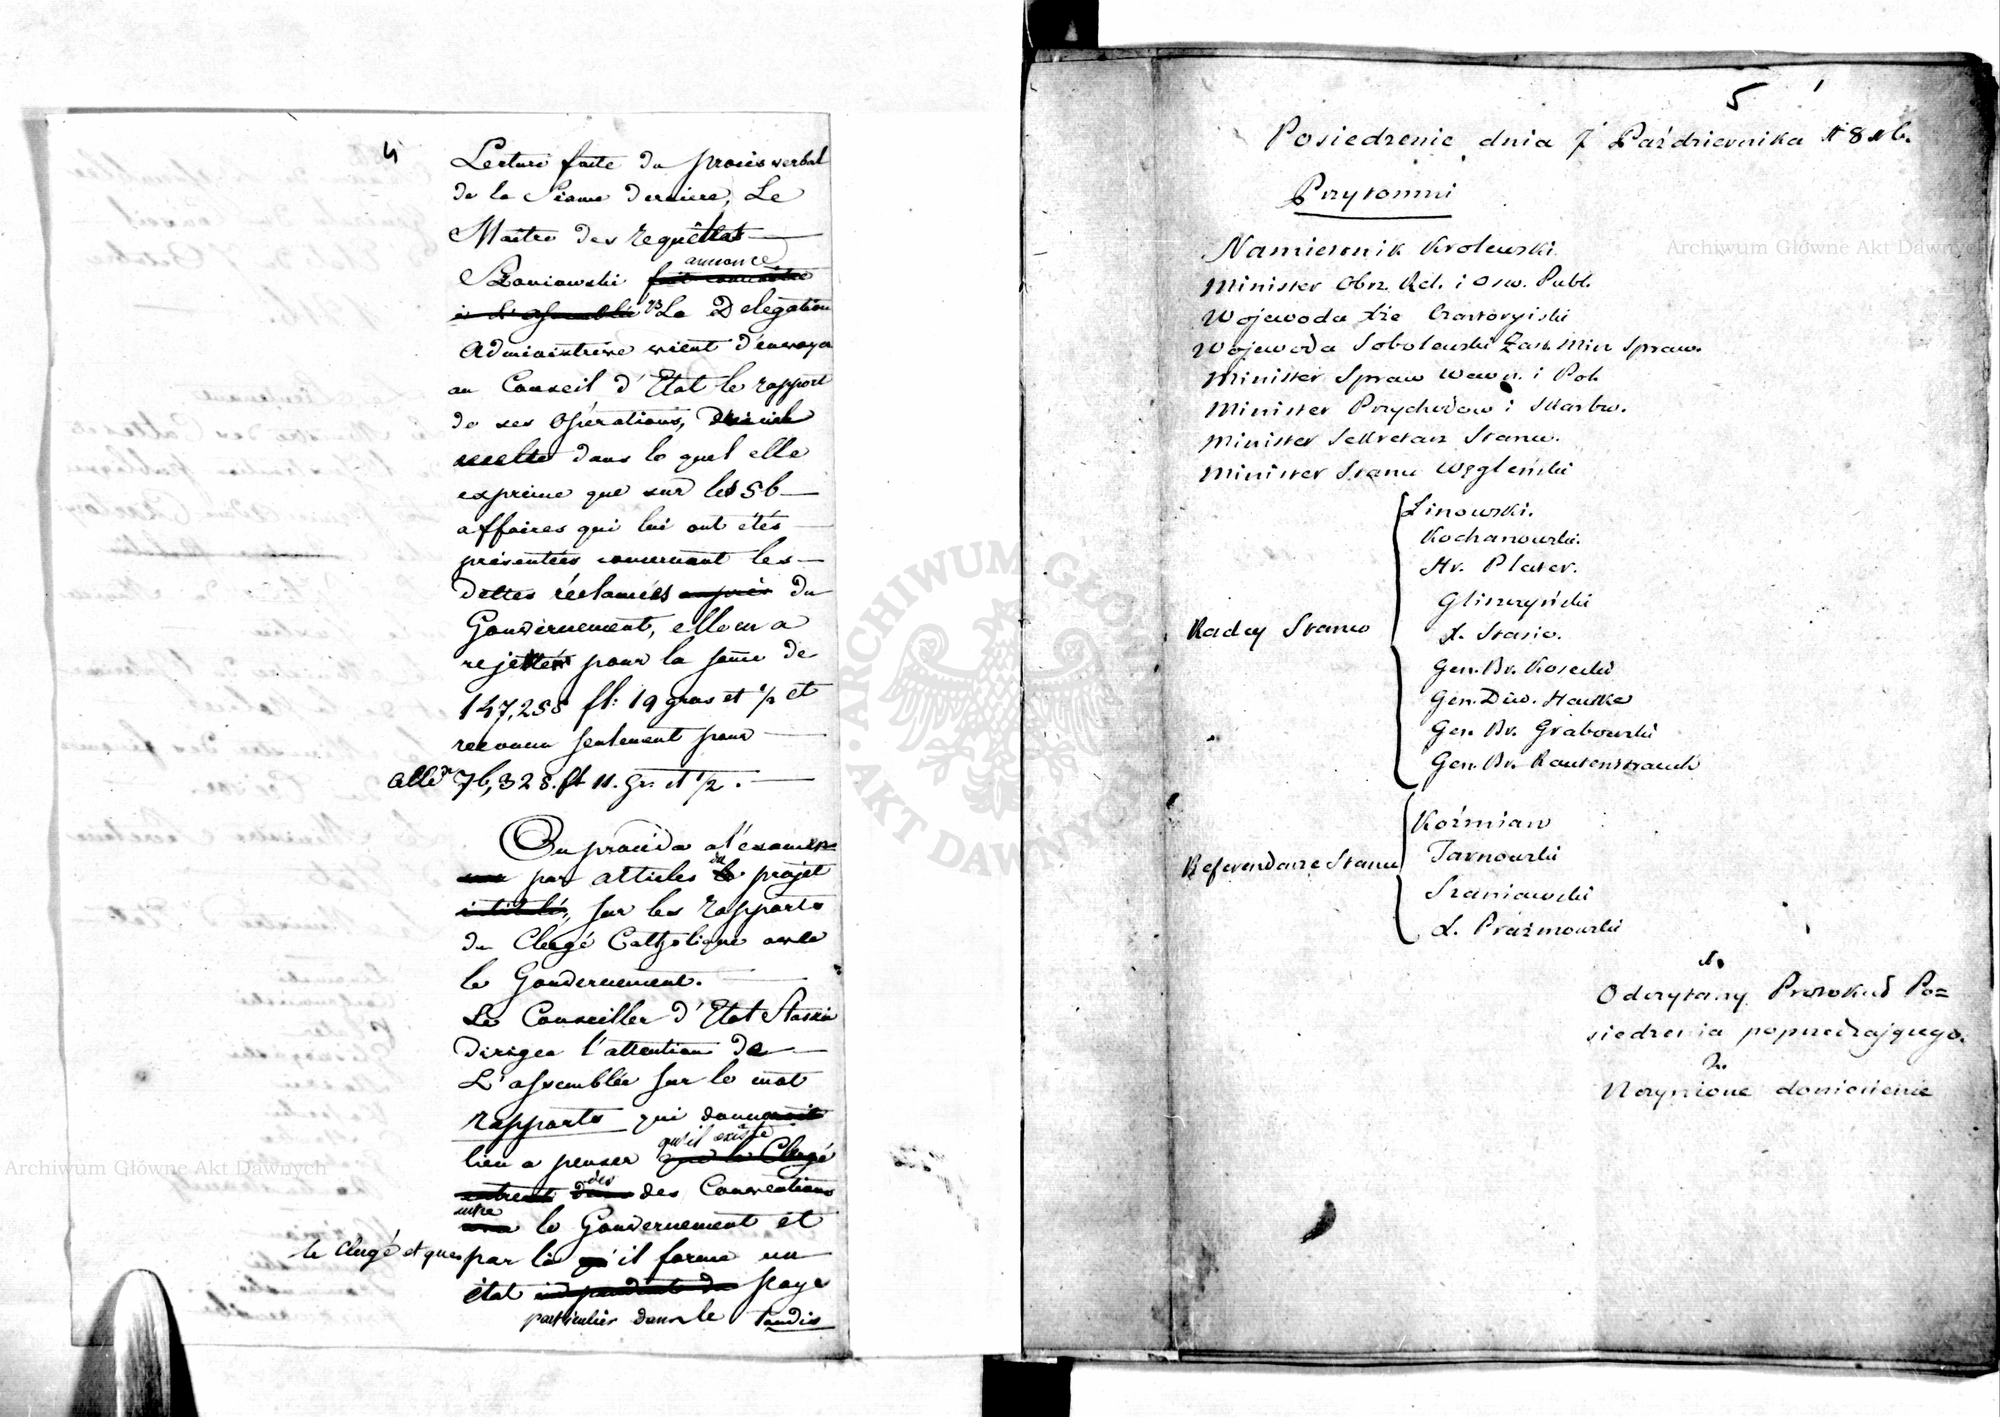 4
Lecture faite du procès verbal
de la Séance derniere, Le
Maître des requêttes
annonce
Szaniawski fait connoitre
à l'assemblée que La Délégation
Administrive vient d'envoyer
au Conseil d'Etat le rapport
de ses opérations,
dans le quel elle
exprime que sur les 56
affaires qui lui ont étés
présentées concernant les
dettes réclamées auprès du
Gouvernement, elle en a
rejetté pour la some de
147,255 fl: 19 gros et 1/2 et
reconnu seulement pour
celle de 76,328. fl 11. gr. et 1/2.
On procéda a l'examen
par articles du projet
intitulé, sur les rapports
du Clergé Catholique avec
le Gouvernement.
Le Conseiller d'Etat Staszic
dirigea l'attention de
L'assemblée sur le mot
rapports qui donnoit
qu'il existe
lieu a penser que le Clergé
entrent dans des Conventions
entre
le Gouvernement et
le Clergé et que par là qu'il forme un
état indépendant du pays
particulier dans le tandis
5
Posiedzenie dnia 7 Października 1816.
Przytomni
Namiesnik Krolewski.
Minister Obrz. Rel. i Osw. Publ.
Wojewoda Xże Czartoryiski
Wojewoda Sobolewski Zas. Min Spraw.
Minister Spraw Wewn. i Pol.
Minister Przychodow i Skarbu.
Minister Sekretarz Stanu.
Minister Stanu Węgleński
Linowski.
Kochanowski.
Hr. Plater.
Gliszczyński
X. Stasic.
Gen. Br. Kosecki
Gen. Dyw. Hauke
Gen. Br. Grabowski
Gen. Br. Rautenstrauch
Radcy Stanu
Koźmian
Tarnowski
Szaniawski
X. Prażmowski
Referendarze Stanu
1.
Odczytany Protokuł Po=
siedzenia poprzedzającego.
2.
Uczynione doniesienie
Archiwum Główne Akt Dawnych
Archiwum Główne Akt Dawnych
ARCHIWUM GŁÓWNE AKT DAWNYCH